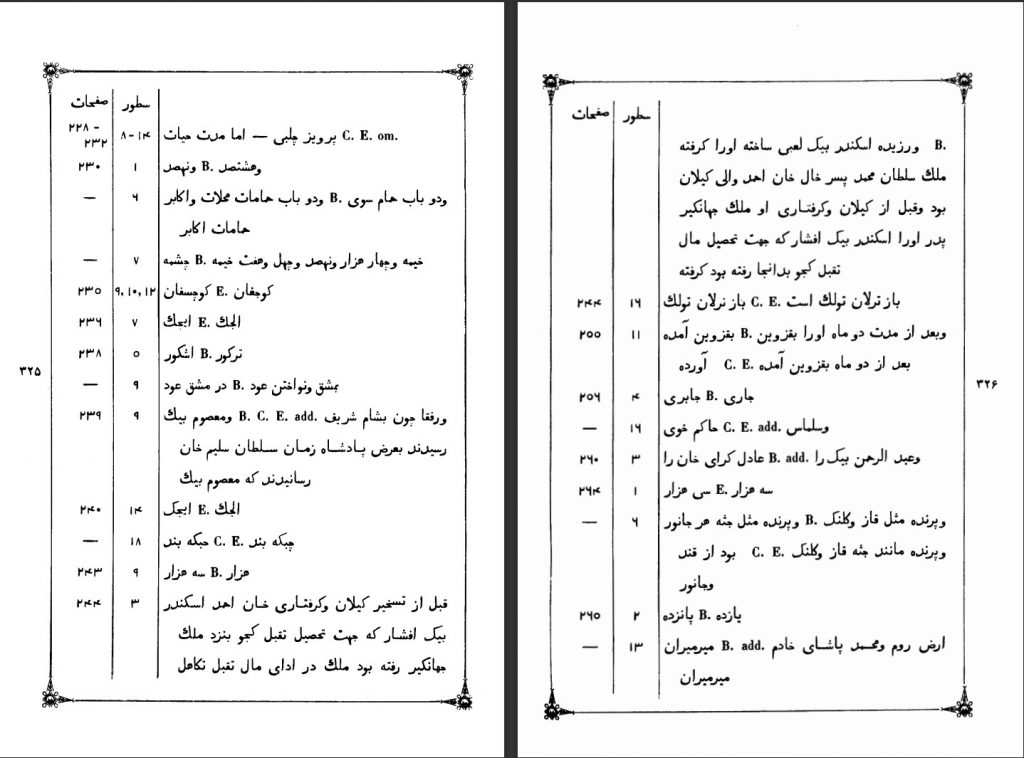 صفحات سطور
۲۲۸ -
۲۳۲ ۸-۱۴ پرویز چلبی — اما مدت حیات C. E. om.
۲۳۰ ۱ ونهصد B. وهشتصد
— ۶ ودو باب حمامات محلات واکابر B. ودو باب حمام سوی
حمامات اکابر
— ۷ چشمه B. خیمه وچهار هزار ونهصد وچهل وهفت خیمه
۲۳۵ ۹,۱۰,۱۲ کوچسفان E. کوچفان
۲۳۶ ۷ ایجک E. الجك
۲۳۸ ۵ اشکور B. ترکور
— ۹ در مشق عود B. بمشق ونواختن عود
۲۳۹ ۹ ومعصوم بیك B. C. E. add. ورفقا چون بشام شریف
رسیدند بعرض پادشاه زمان سلطان سلیم خان
رسانیدند که معصوم بیك
۲۴۰ ۱۴ ایجک E. الجك
— ۱۸ جبکه بند C. E. چبکه بند
۲۴۳ ۹ سه هزار B. هزار
۲۴۴ ۳ قبل از تسخیر کیلان وکرفتاری خان احمد اسکندر
بیک افشار که جهت تحصیل تقبل کجو بنزد ملك
جهانگیر رفته بود ملك در ادای مال تقبل تکاهل
۳۲۵
صفحات سطور
B. ورزیده اسکندر بیک لعبی ساخته اورا کرفته
ملك سلطان محمد پسر خال خان احمد والی کیلان
بود وقبل از کیلان وکرفتاری او ملك جهانکیر
پدر اورا اسکندر بیک افشار که جهت تحصیل مال
تقبل کجو بدانجا رفته بود کرفته
۲۴۴ ۱۶ باز نرلان تولك C. E. باز ترلان تولك است
۲۵۵ ۱۱ بقزوین آمده B. وبعد از مدت دو ماه اورا بقزوین
آورده C. E. بعد از دو ماه بقزوین آمده
۲۵۶ ۴ جابری B. جاری
— ۱۶ حاکم خوی C. E. add. وسلماس
۲۶۰ ۳ عادل کرای خان را B. add. وعبد الرحمن بیک را
۲۶۴ ۱ سی هزار E. سه هزار
— ۶ وپرنده مثل جثه هر جانور B. وپرنده مثل قاز وکلنک
بود از قند C. E. وپرنده مانند جثه قاز وکلنک
وجانور
۲۶۵ ۲ پانزده B. یازده
— ۱۳ میرمیران B. add. ارض روم ومحمد پاشای خادم
میرمیران
۳۲۶